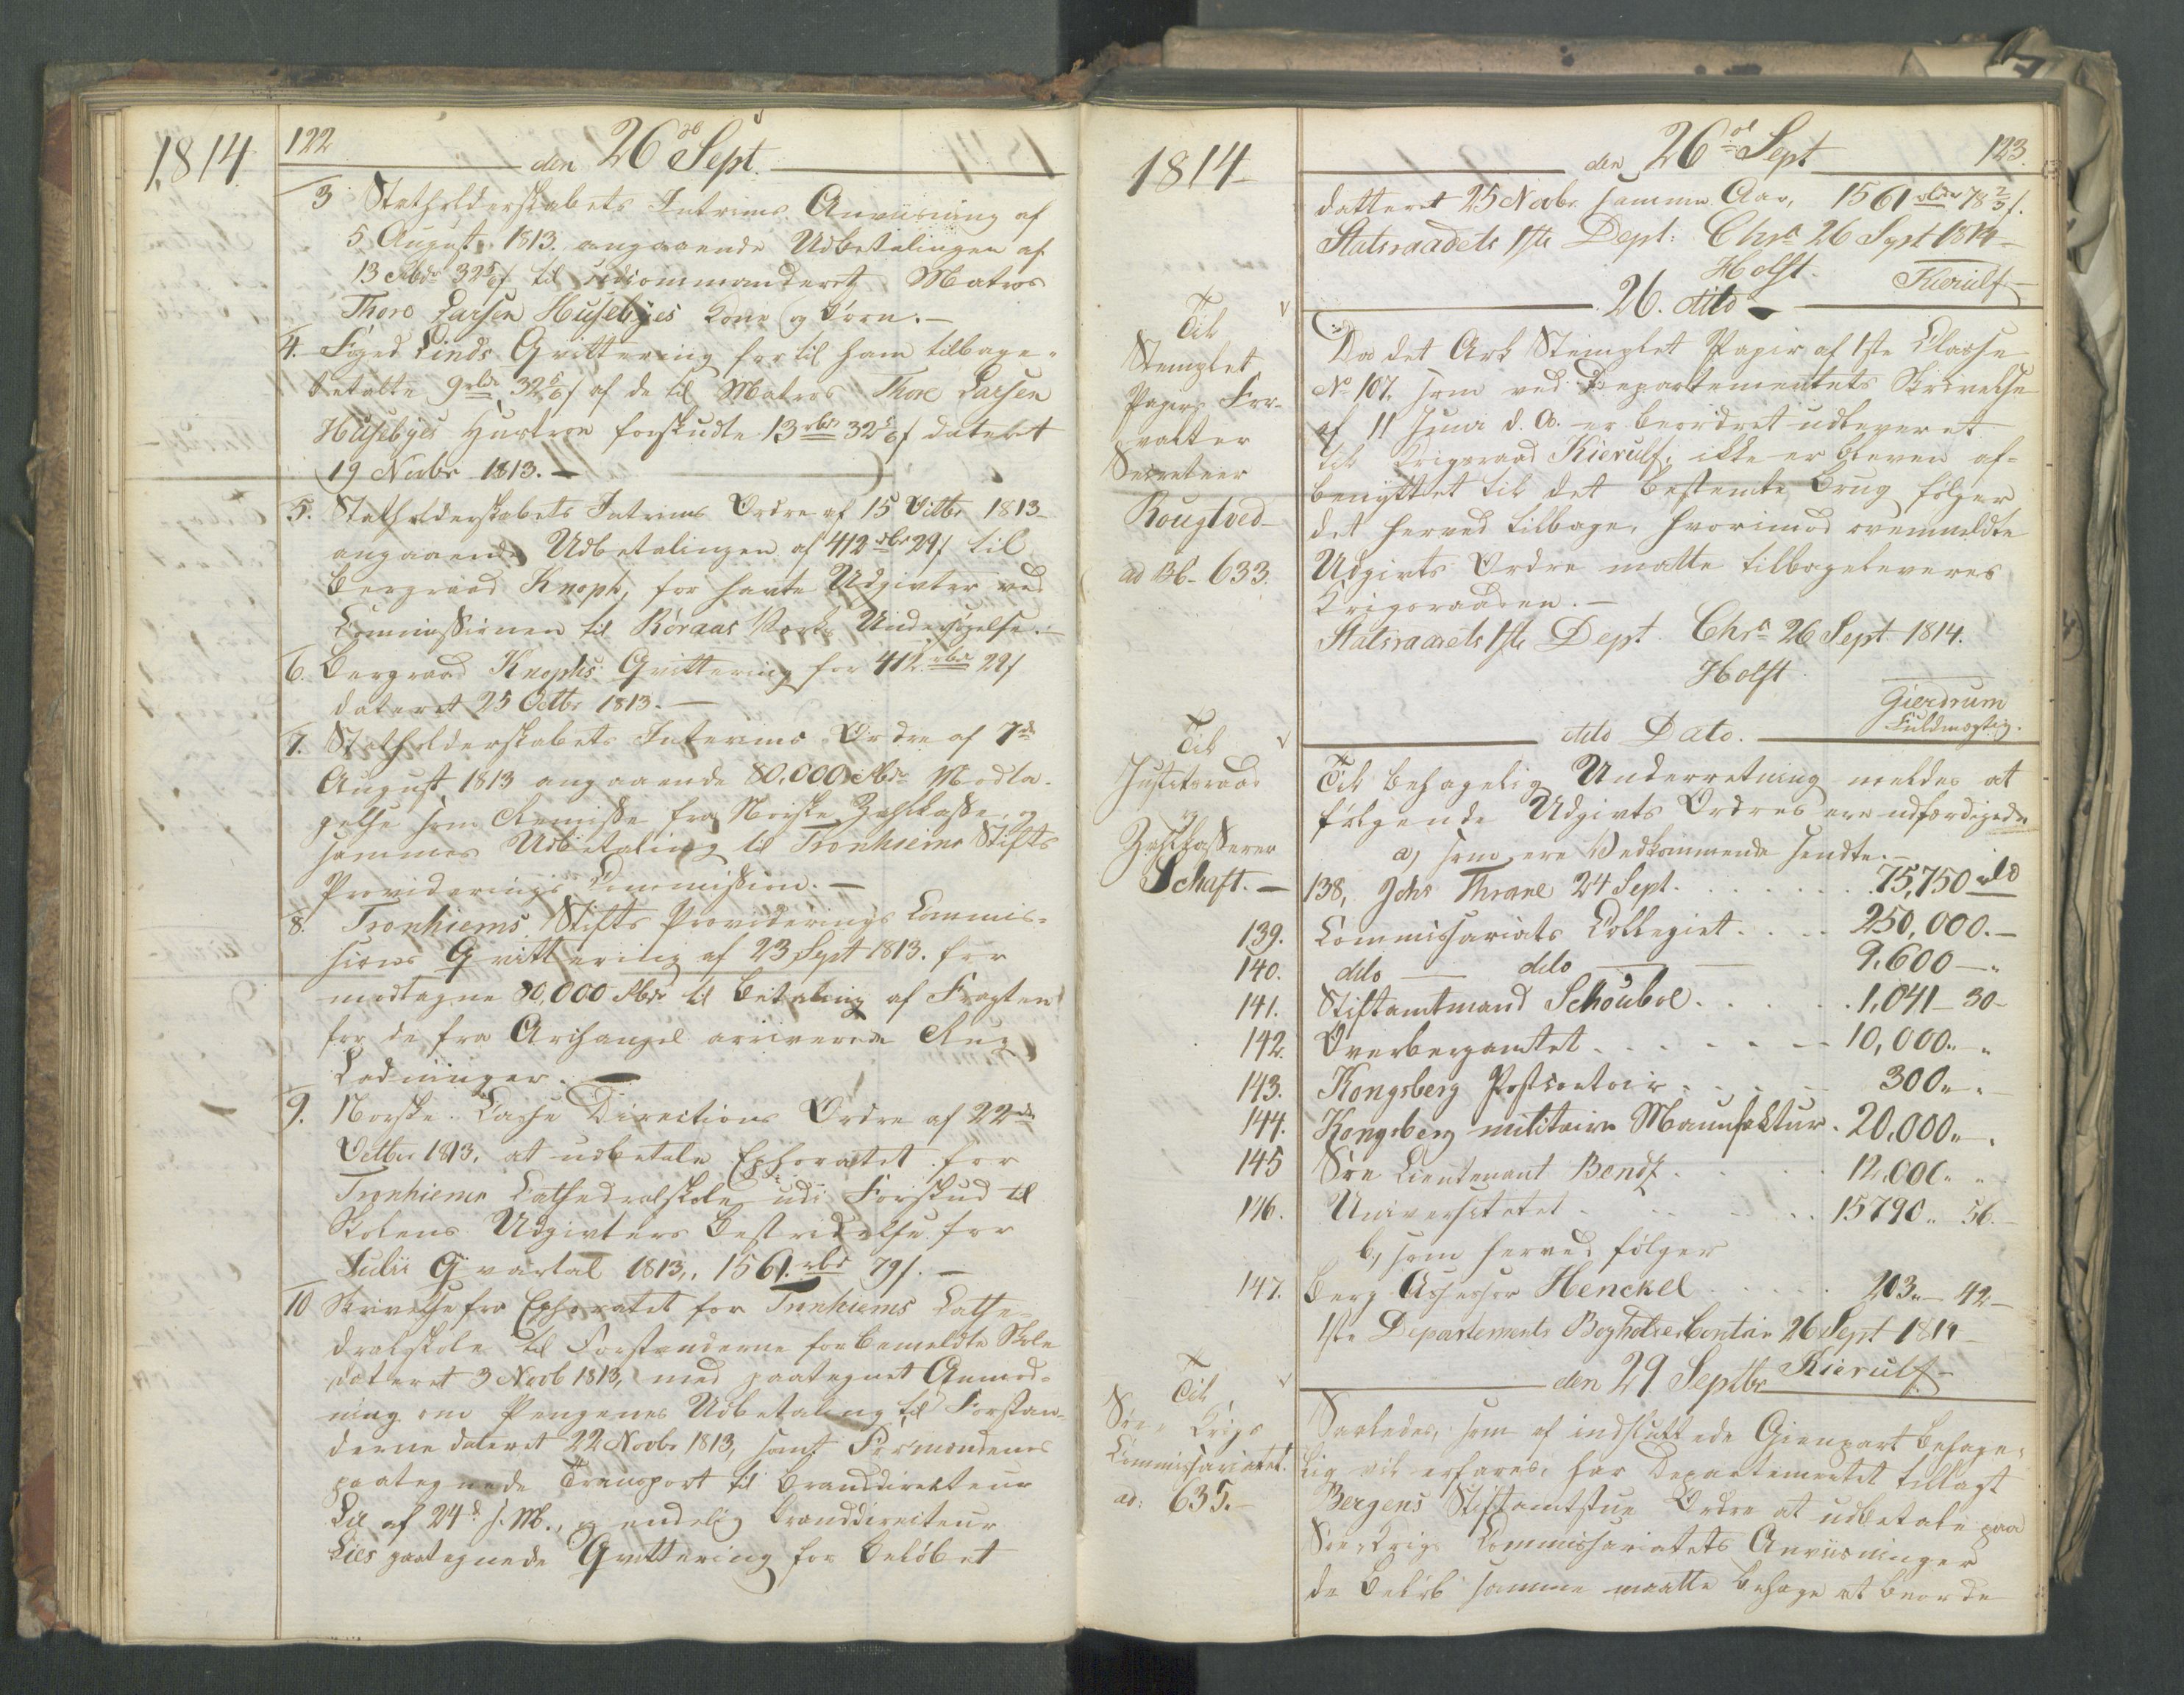 1814
122
den 26de Sept.
3 Statholderskabets Intrims Anviisning af
5 August 1813. angaaende Udbetalingen af
13 Rbdr 32 5/6 s til udcommanderet Matros
Thore Larsen Husebyes Kone og Børn.—
4. Foged Linds Qvittering for til ham tilbage-
betalte 9 rbd 32 5/6 s af de til Matros Thore Larsen
Husebyes Hustroe forskudte 13 rbdr 32 5/6 s dateret
19 Novbr 1813.—
5. Statholderskabets Intrims Ordre af 15 Octbr 1813
angaaende Udbetalingen af 412 rbd 29 s til
Bergraad Knoph, for havte Udgivter ved
Commissionen til Røraas Værks Undersøgelse.—
6. Bergraad Knophs Qvittering for 412 rbd 29 s
dateret 25 Octbr 1813.—
7. Statholderskabets Interims Ordre af 7de
August 1813 angaaende 80,000 Rbdr Modta-
gelse som Remisse fra Norske Zahlkasse, og
sammes Udbetaling til Tronhiems Stifts
Providerings Commission.—
8. Tronhiems Stifts Providerings Commis-
sions Qvittering af 23 Sept 1813. for
modtagne 80,000 Rbdr til Betaling af Fragten
for de fra Archangel ariverede Rug
Ladninger.—
9. Norske Casse Directions Ordre af 22de
Octbr 1813, at udbetale Ephoratet for
Tronhiems Cathedralskole udi Forskud til
Skolens Udgivters Bestridelse for
Julii Qvartal 1813, 1561 rbd 79 s.—
10 Skrivelse fra Ephoratet for Tronhiems Cathe-
dralskole til Forstanderne for bemeldte Skole
dateret 3 Novb 1813, med paategnet Anmod-
ning om Pengenes Udbetaling til Forstan-
derne dateret 22 Novbr 1813, samt Formændenes
paategnede Transport til Branddirekteur
Lie af 24d s. M., og endelig Branddirecteur
Lies paategnede Qvittering for Beløbet
1814
den 26de Sept
123.
datteret 25 Novbr samme Aar, 1561 rbdr 78 2/3 s.
Statsraadets 1ste Dept: Chra 26 Sept 1814
Holst.
Kierulf
26. dito
Til
Stemplet
Papirs For-
valter
Secreteer
Rougtved
ad Bb. 633.
Da det Ark Stemplet Papir af 1ste Classe
No 107. som ved Departementets Skrivelse
af 11 Juni d. A. er beordret udleveret
til Krigsraad Kierulf, ikke er bleven af-
benyttet til det bestemte Brug følger
det herved tilbage, hvorimod ovenmeldte
Udgivts Ordre matte tilbageleveres
Krigsraaden.—
Statsraadets 1ste Dept. Chra 26 Sept 1814.
Holst
Gierdrum
Fuldmægtig.
dito Dato.
Til
Justitsraad
og
Zahlkasserer
Schaft.—
Til behagelig Underretning meldes at
følgende Udgivts Ordres ere udfærdigede
a, som ere Vedkommende sendte.—
138, Johs Thrane 24 Sept. 75,750 rbd
139. Commissariats Collegiet 250,000.—
140. dito — dito — 9,600 — "
141. Stiftamtmand Schouboe 1,041 — 30
142. Overbergamtet 10,000 " "
143. Kongsberg Postcontoir 300 " "
144. Kongsberg militaire Manufaktur. 20,000 " "
145 Søe Lieutenant Bendz 12,000 " "
146. Universitetet 15790 " 56.
b, som herved følger
147. Berg Assessor Henckel 203 " 42
1ste Departements Bogholder Contoir 26 Sept 1814
Kierulf
den 29 Septbr
Til
Søe, Krigs
Commissariatet.
ad: 635.—
Saaledes, som af indsluttede Gienpart behage-
lig vil erfares, har Departementet tillagt
Bergens Stiftamtstue Ordre at udbetale paa
Søe Krigs Commissariatets Anviisninger
de Beløb samme maatte behage at beorde